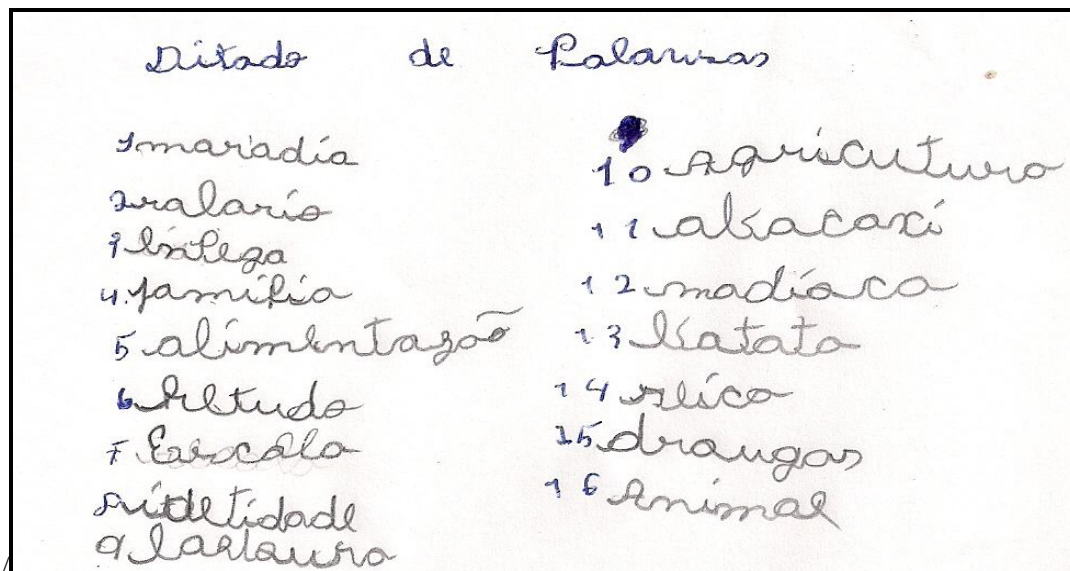 Ditado de Palavras
1 maradia
2 salario
3 linpega
4. familia
5 alimentazão
6
7 Esscola
8 idetidade
9
10 Agricutura
11 abacaxi
12 madiaca
13 batata
14
15 draugas
16 Animal